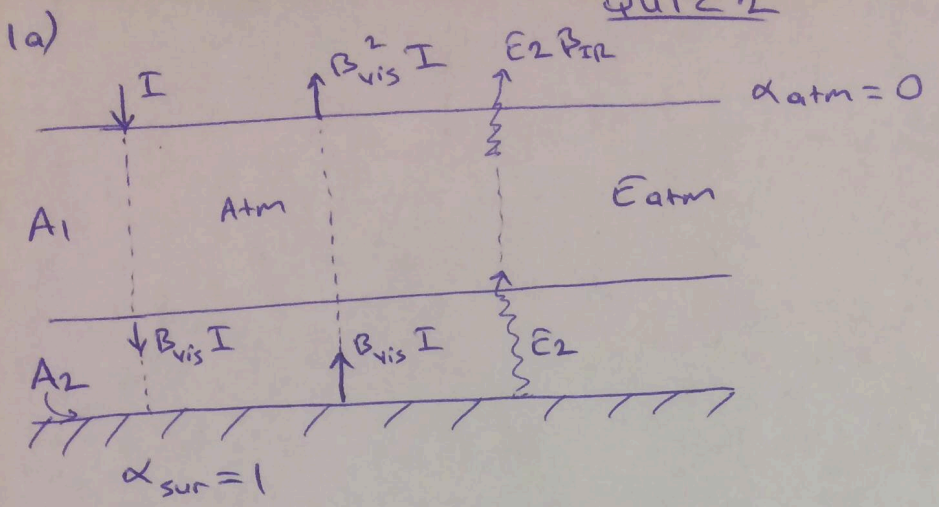 QUIZ 2
1a)
I
B²vis I
E2 BIR
αatm = 0
A1
Atm
Eatm
Bvis I
Bvis I
E2
A2
αsur = 1